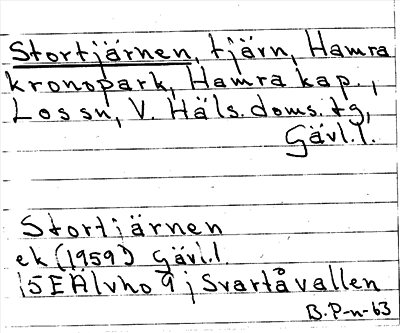 Stortjärnen, tjärn, Hamra
kronopark, Hamra kap.,
Los sn, V. Häls. doms. tg,
Gävl. l.
Stortjärnen
ek (1959) Gävl. l.
15E Älvho 9 j Svartåvallen
B. P-n-63